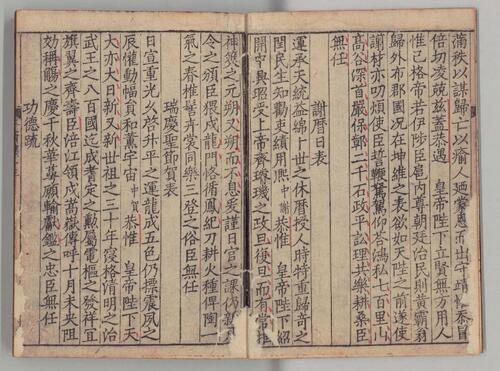 蒲秩以謀歸亡以瘉人迺蒙恩而出守靖忝冒
倍切凌兢兹蓋恭遇　皇帝陛下立賢無方用人
惟己格帝若伊陟臣扈內尊朝廷治民則黃霸翁
歸外布郡國况在坤維之表欲如天陛之前遂使
謭材亦叨煩使臣誓鞭駑駕仰荅鴻私七百里山
高谷深首嚴保鄣二千石政平訟理共樂耕桑臣
無任
謝曆日表
運承天統益綿卜世之休曆授人時特重歸奇之
閏民生知勸東績用熈中謝恭惟　皇帝陛下紹
開中興昭受上帝齊璿璣之政旦復旦而有常
神筴之元朔又朔而不息爰謹日官之課仍新
令之頒臣猥戍龍門恪循鳳紀刀耕火種俾陶一
氣之春椎髻卉裳同樂三登之俗臣無任
瑞慶聖節賀表
日宣重光幺啓升平之運龍成五色仍摽震夙之
辰懽動幅員和薰宇宙中賀恭惟　皇帝陛下天
大亦大日新又新世祖之三十年寖格清明之治
武王之八百國迄成耆定之勲屬電樞之發祥宜
旗翼之齊壽臣涪江領戍嵩嶽傳呼十月未央阻
効稱觴之慶千秋華萼願輸獻鑑之忠臣無任
功德疏